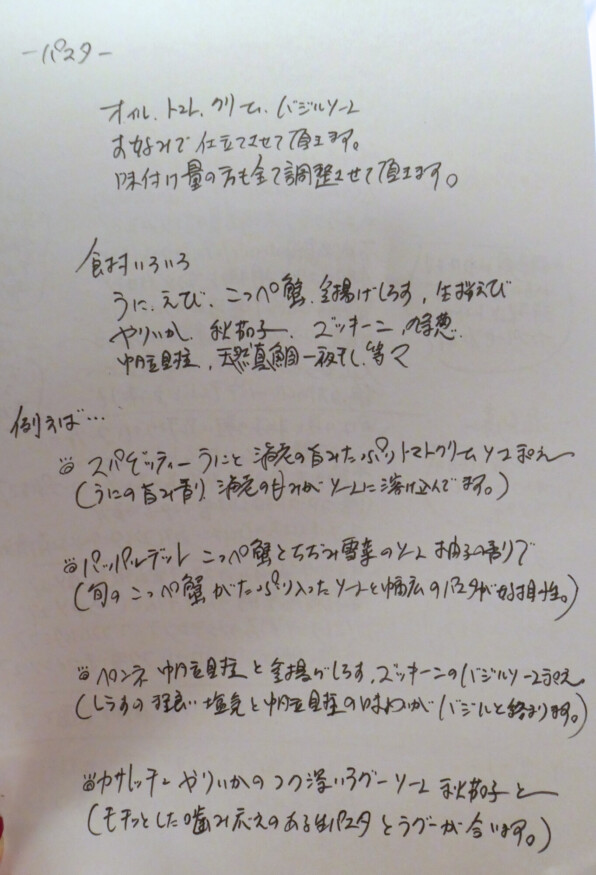 －パスタ－
オイル、トマト、クリーム、バジルソース
お好みで仕立てさせて頂きます。
味付け量の方も全て調整させて頂きます。
食材いろいろ
うに、えび、こっペ蟹、釜揚げしらす、生桜えび
やりいか、秋茄子、ズッキーニ、葱
帆立貝柱、天然真鯛一夜干し、等々
例えば…
スパゲッティー うにと海老の旨みたっぷりトマトクリームソース和え
（うにの旨み香り、海老の甘みがソースに溶け込んでます。）
パッパルデッレ こっペ蟹とちぢみ雪菜のソース 柚子の香りで
（旬のこっペ蟹がたっぷり入ったソースと幅広のパスタが好相性。）
ペンネ 帆立貝柱と釜揚げしらす、ズッキーニのバジルソース和え
（しらすの程良い塩気と帆立貝柱の味わいがバジルと絡まります。）
カサレッチェ やりいかのコク深いラグーソース 秋茄子と
（モチッとした噛み応えのある生パスタとラグーが合います。）